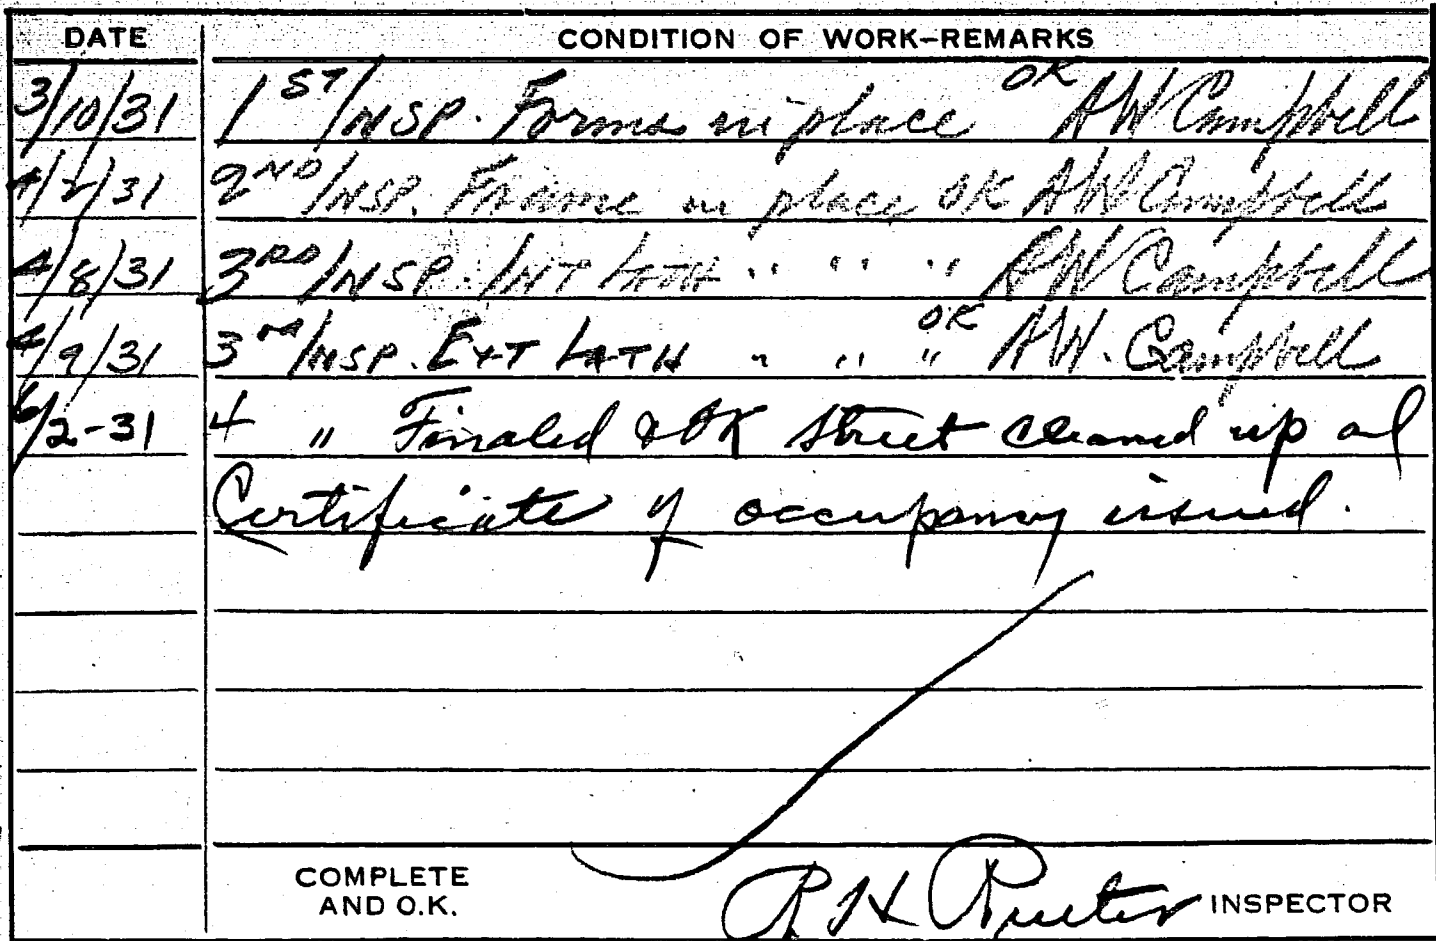 DATE CONDITION OF WORK-REMARKS
3/10/31 1ST INSP. Forms in place OK AW Campbell
4/2/31 2ND INSP. Frame in place OK AW Campbell
4/8/31 3RD INSP. INT LATH " " " AW Campbell
4/9/31 3rd INSP. EXT LATH " " " OK AW. Campbell
6/2-31 4 " Finaled & OK Street cleaned up and
Certificate of occupancy issued.
COMPLETE
AND O.K. R H INSPECTOR